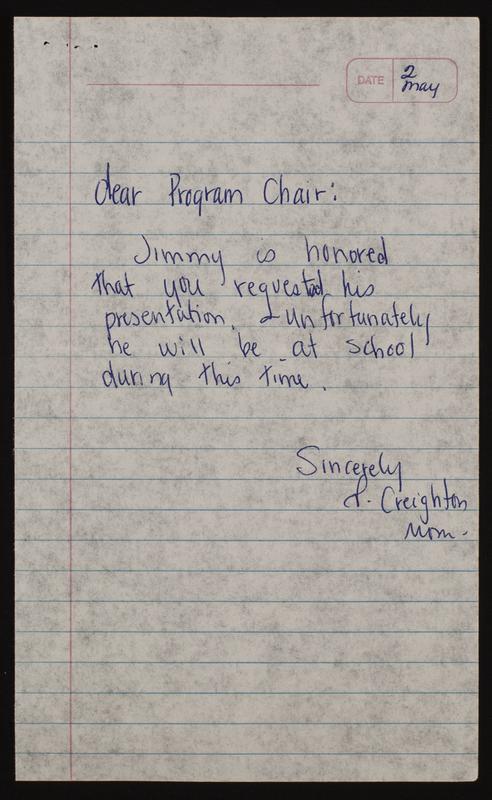 DATE
2
may
dear Program Chair:
Jimmy is honored
that you requested his
presentation. Unfortunately
he will be at school
during this time.
Sincerely
Creighton
Mom.